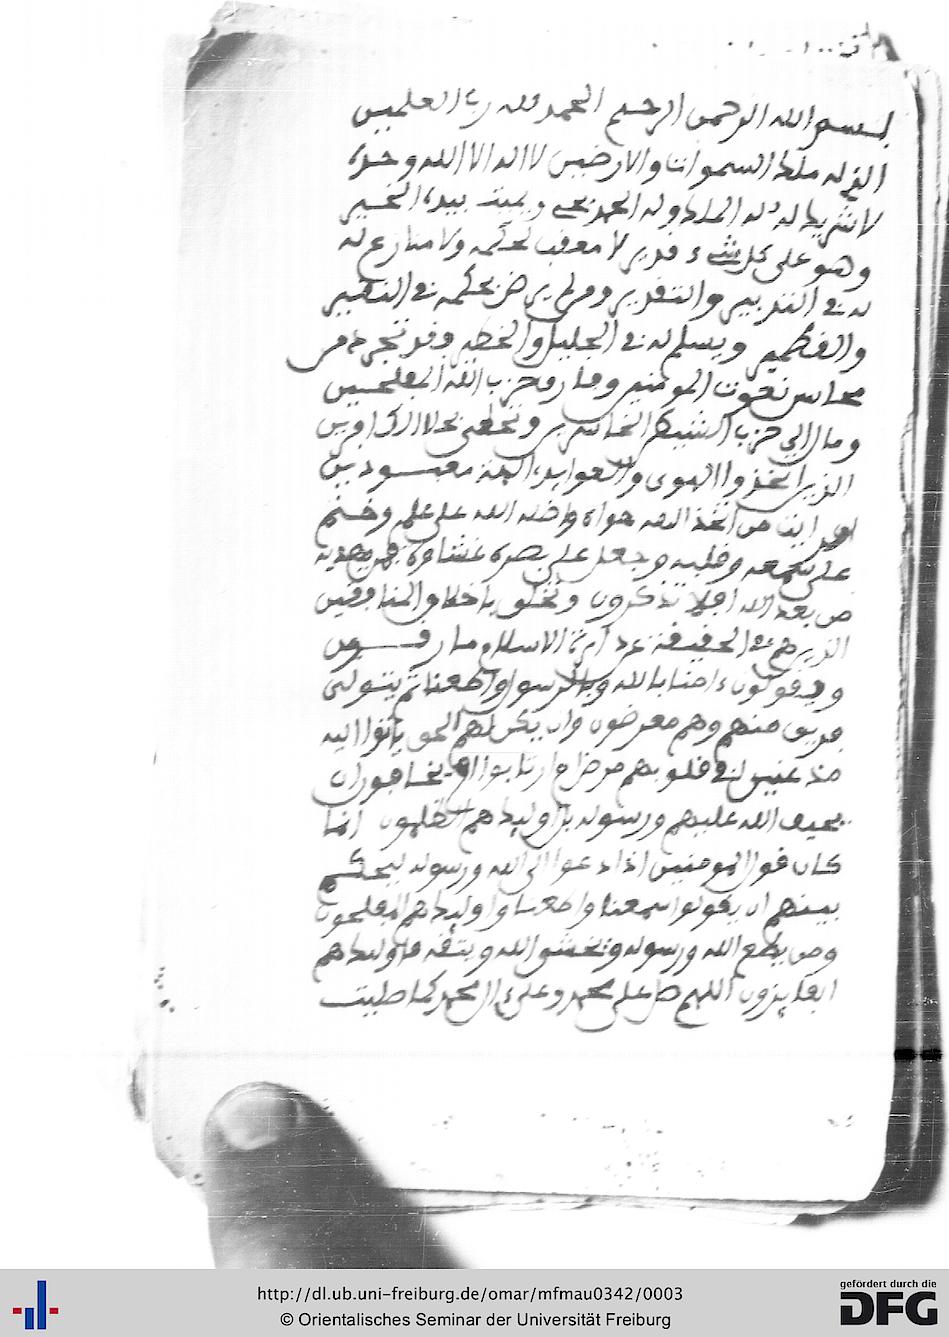 بسم الله الرحمن الرحيم الحمد لله رب العلمين
الذي له ملك السموات والارضين لا اله الا الله وحده
لا شريك له له الملك وله الحمد يحيي ويميت بيده الخير
وهو على كل شيء قدير لا معقب لحكمه ولا منازع له
له في التدبير والتقدير ومن لم يرض بحكمه في النقير
والقطمير ويسلم له في الجليل والخطير وقد تجرد من
محاسن نعوت المومنين وما من حزب الله المفلحين
ومال الى حزب الشيطن الخاسرين وتحلى بحلا الكافرين
الذين اتخذوا الهوى والعوايد الهة معبودين
افرايت من اتخذ الهه هواه واضله الله على علم وختم
على سمعه وقلبه وجعل على بصره غشاوة فمن يهديه
من بعد الله افلا تذكرون وتخلق باخلاق المنافقين
الذين هم في الحقيقة عن دايرة الاسلام مارقون
ويقولون ءامنا بالله وبالرسول واطعنا ثم يتولى
فريق منهم وهم معرضون وان يكن لهم الحق ياتوا اليه
مذعنين افي قلوبهم مرض ام ارتابوا ام يخافون ان
يحيف الله عليهم ورسوله بل اوليك هم الظلمون انما
كان قول المومنين اذا دعوا الى الله ورسوله ليحكم
بينهم ان يقولوا سمعنا واطعنا واوليك هم المفلحون
ومن يطع الله ورسوله ويخش الله ويتقه فاوليك هم
الفايزون اللهم صل على محمد وعلى ءال محمد كما صليت
http://dl.ub.uni-freiburg.de/omar/mfmau0342/0003
© Orientalisches Seminar der Universität Freiburg
gefördert durch die
DFG